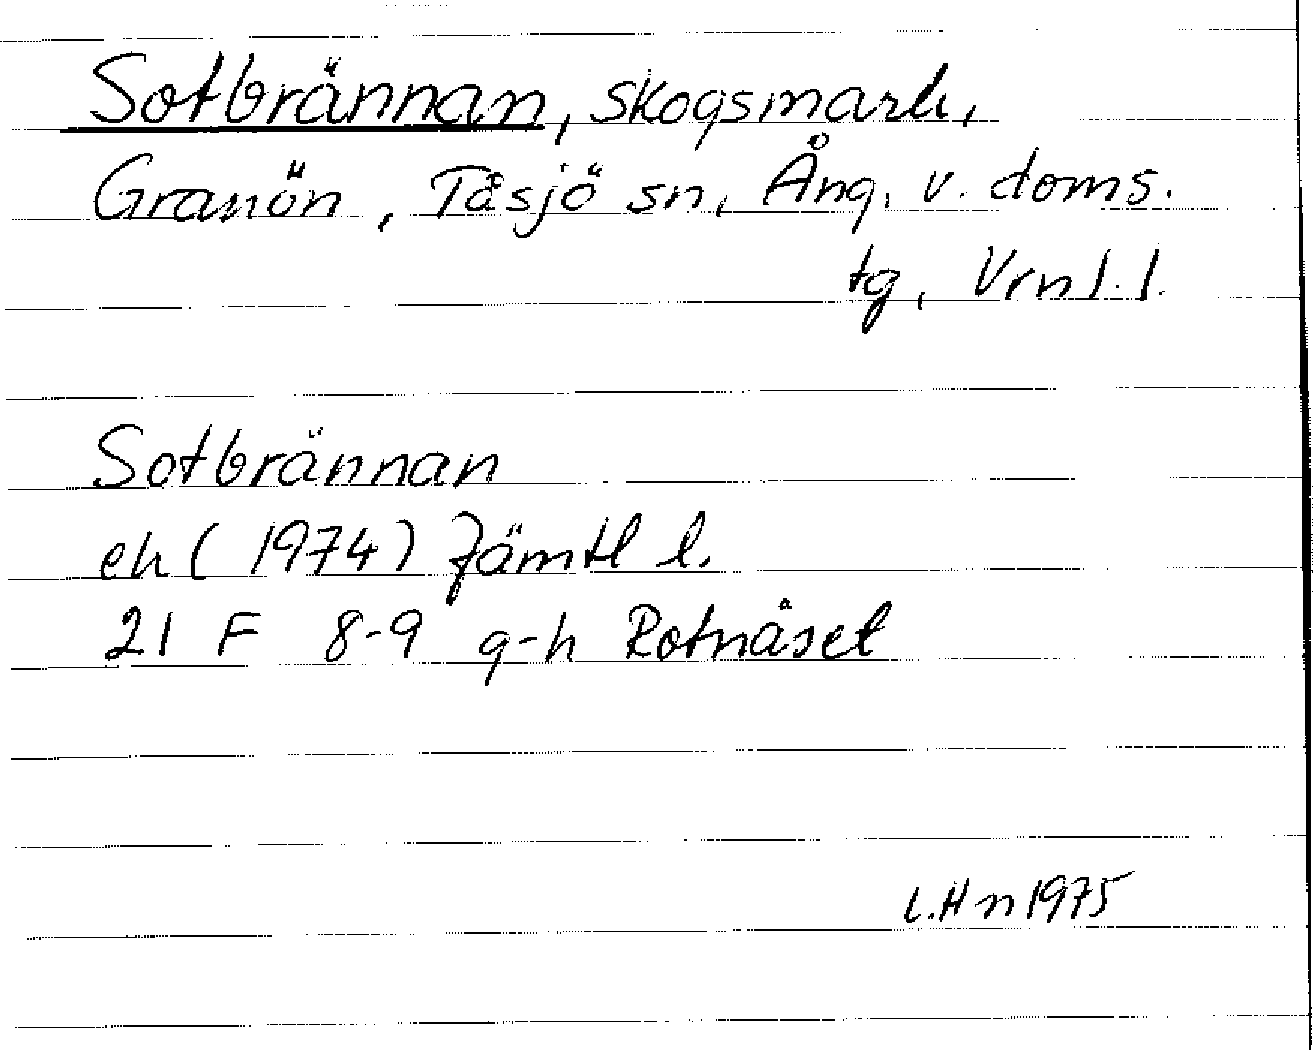 Sotbrännan, skogsmark,
Granön, Tåsjö sn, Ång. v. doms.
tg, Vrnl. l.
Sotbrännan
ek (1974) Jämtl l.
21 F 8-9 g-h Rotnåset
L.Hn 1975